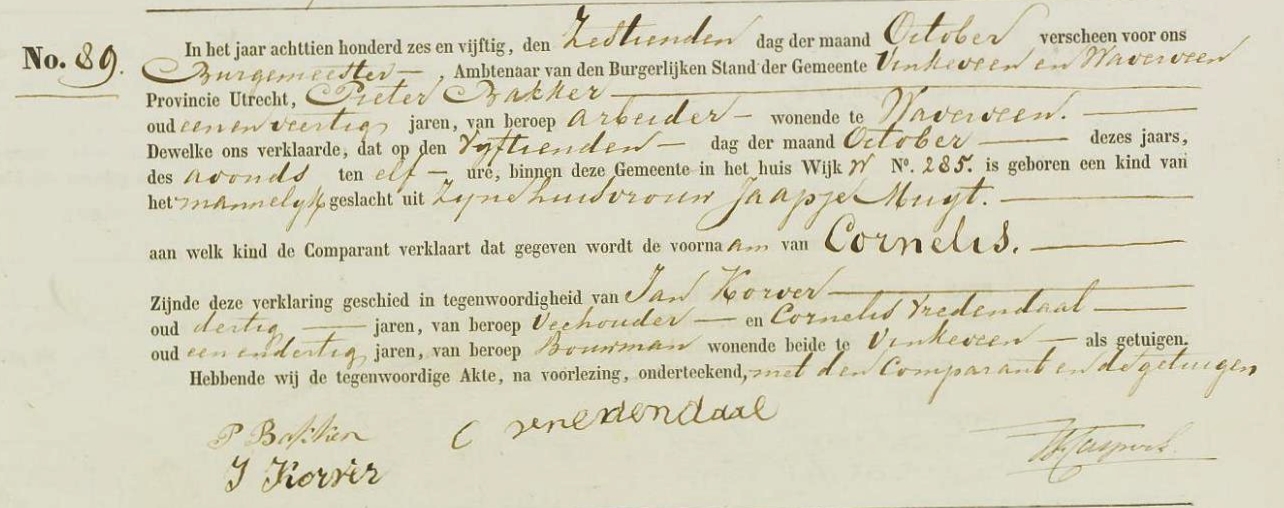 No. 89.
In het jaar achttien honderd zes en vijftig, den Zestienden dag der maand October verscheen voor ons
Burgemeester, Ambtenaar van den Burgerlijken Stand der Gemeente Vinkeveen en Waverveen
Provincie Utrecht, Pieter Bakker
oud een en veertig jaren, van beroep Arbeider wonende te Waverveen.
Dewelke ons verklaarde, dat op den Vyftienden dag der maand October dezes jaars,
des avonds ten elf ure, binnen deze Gemeente in het huis Wijk W No. 285. is geboren een kind van
het mannelyk geslacht uit Zyne huisvrouw Jaapje Muyt.
aan welk kind de Comparant verklaart dat gegeven wordt de voornaam van Cornelis.
Zijnde deze verklaring geschied in tegenwoordigheid van Jan Korver
oud dertig jaren, van beroep Veehouder en Cornelis Vredendaal
oud een en dertig jaren, van beroep Bouwman wonende beide te Vinkeveen als getuigen.
Hebbende wij de tegenwoordige Akte, na voorlezing, onderteekend, met den Comparant en de getuigen
P Bakker C vredendaal
J Korver